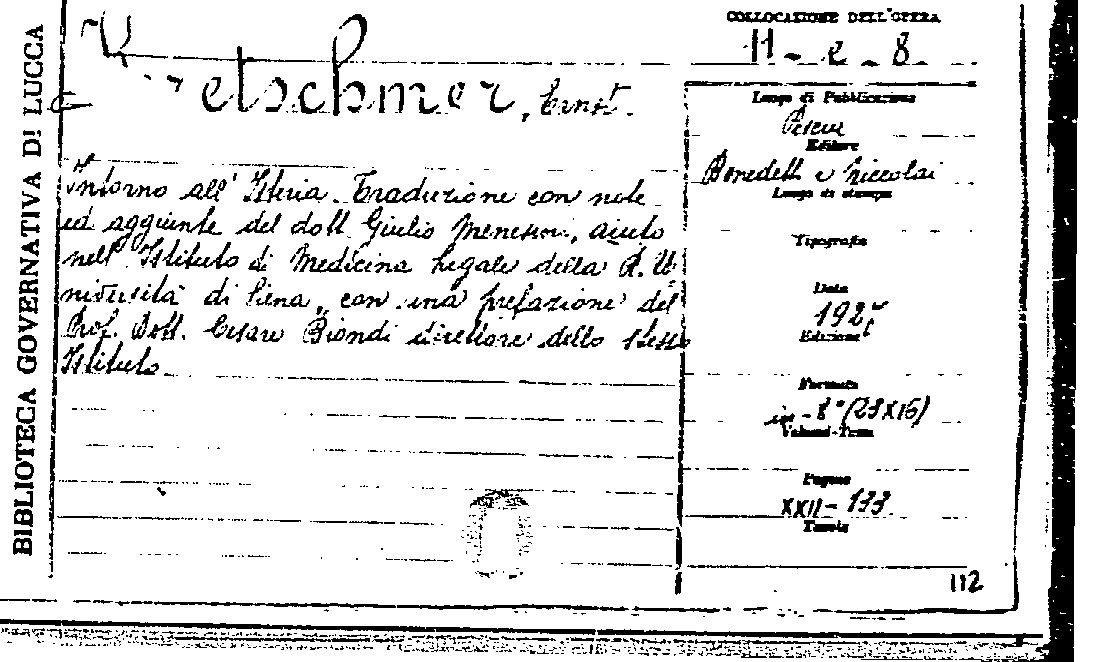 BIBLIOTECA GOVERNATIVA DI LUCCA
COLLOCAZIONE DELL'OPERA
11 - e - 8.
Kretschmer, Ernst.
Intorno all'Isteria. Traduzione con note
ed aggiunte del dott. Giulio aiuto
nell'Istituto di Medicina Legale della R. U
niversità di Siena, con una prefazione del
Prof. Dott. Cesare Biondi direttore dello stesso
Istituto.
Luogo di Pubblicazione
Pescia
Editore
Benedetti e Niccolai
Luogo di stampa
Tipografia
Data
Edizione
Formato
in-8° (23X16)
Volumi-Tomi
Pagine
XXII - 133.
Tavole
112